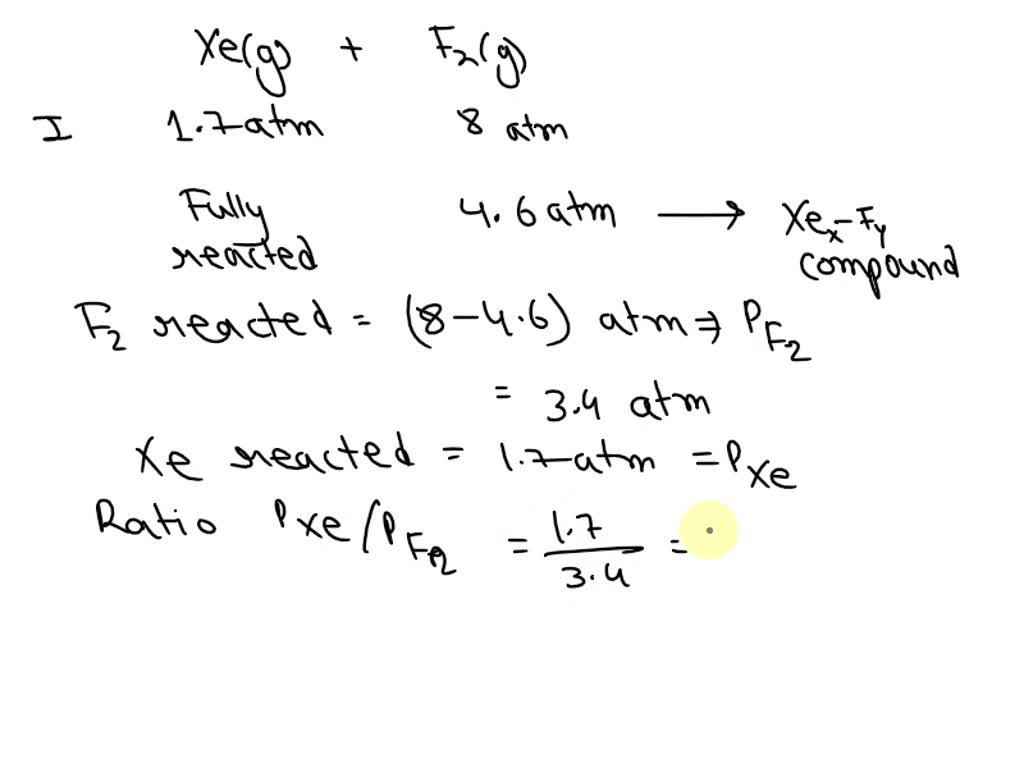 Xe(g) + F₂(g)
I 1.7 atm 8 atm
Fully reacted 4.6 atm ⟶ Xeₓ-Fᵧ compound
F₂ reacted = (8-4.6) atm ⇒ P_F₂
= 3.4 atm
Xe reacted = 1.7 atm = P_Xe
Ratio P_Xe/P_F₂ = 1.7/3.4 =